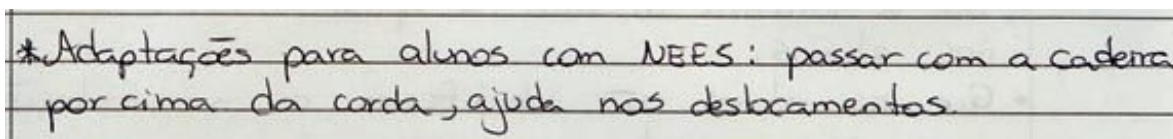 *Adaptações para alunos com NEES: passar com a cadeira
por cima da corda, ajuda nos deslocamentos.